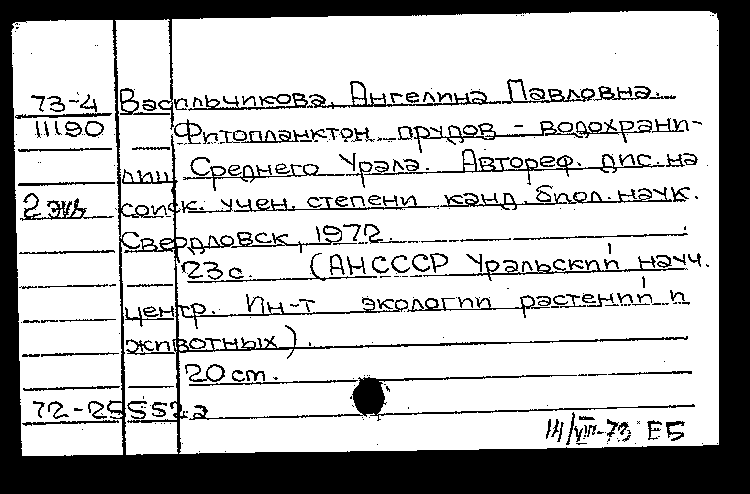 73-4 Васильчикова, Ангелина Павловна.
11190 Фитопланктон прудов - водохрани-
лищ Среднего Урала. Автореф. дис. на
2 экз соиск. учен. степени канд. биол. наук.
Свердловск, 1972.
23 с. (АН СССР Уральский науч.
центр. Ин-т экологии растений и
животных).
20 см.
72-25552а
14/VIII-73 ЕБ